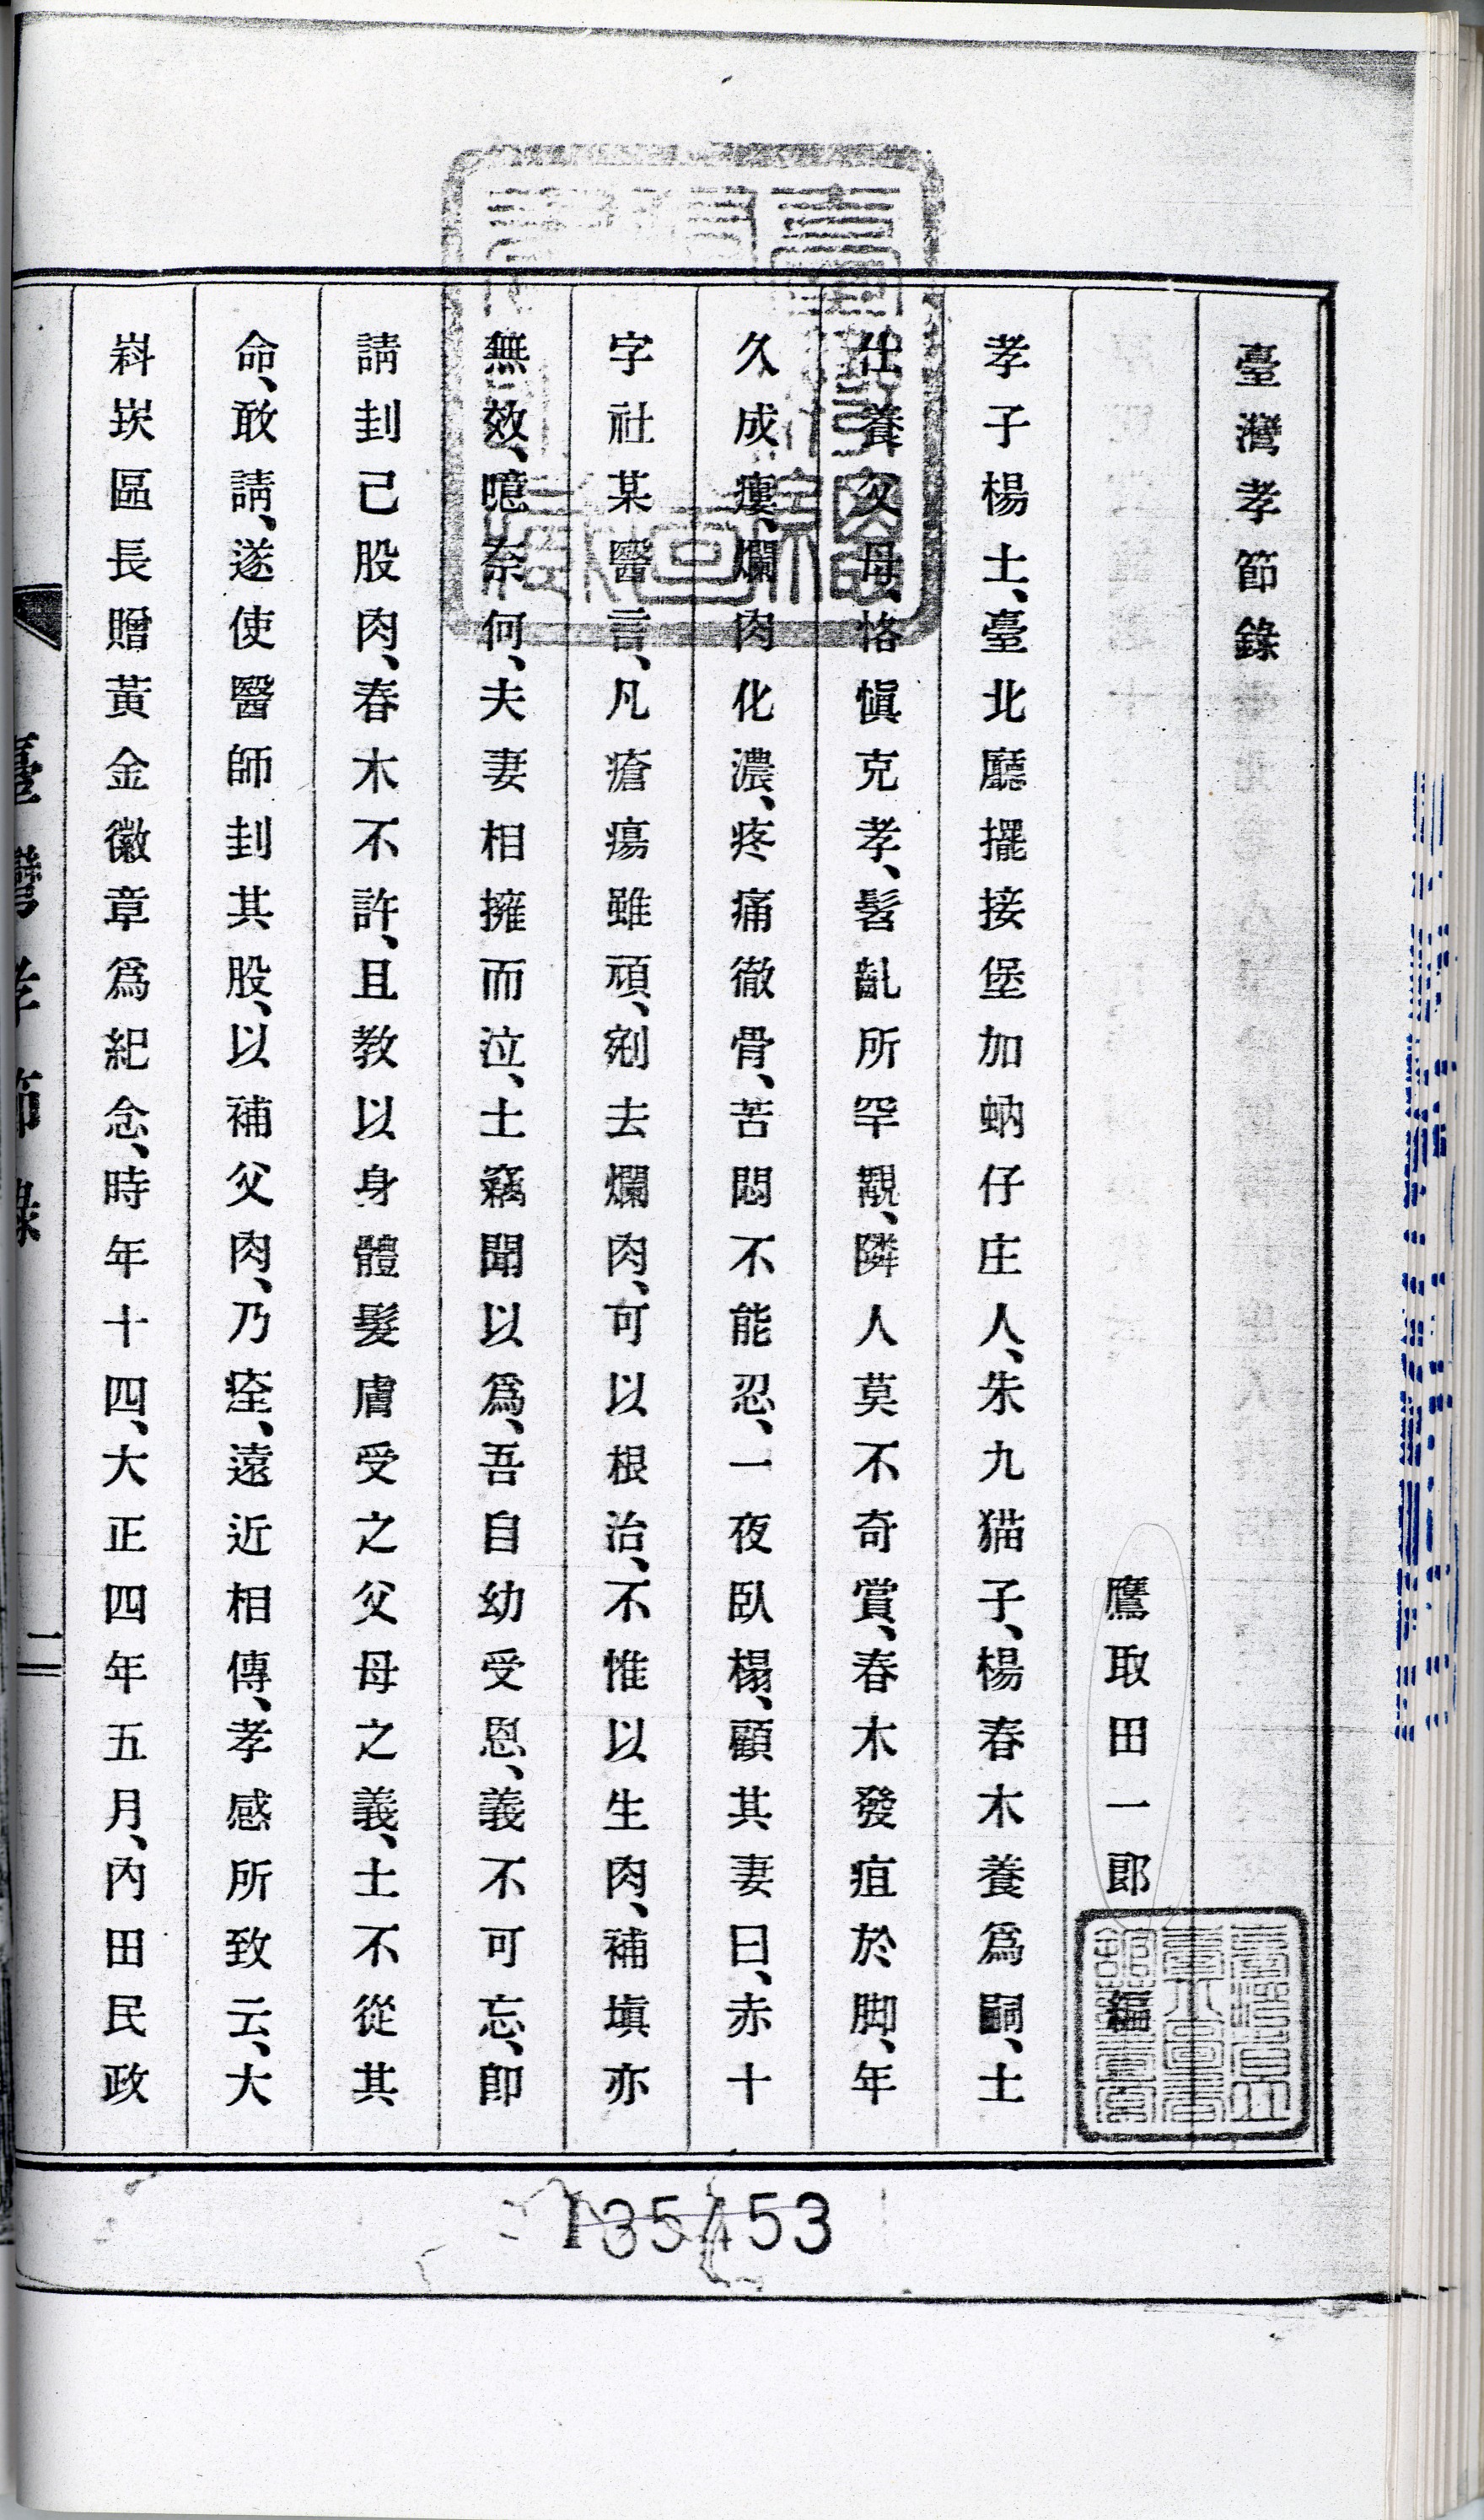 臺灣孝節錄
鷹取田一郎編
孝子楊土、臺北廳擺接堡加蚋仔庄人、朱九猫子、楊春木養爲嗣、土
仕養父母、恪愼克孝、髫齔所罕觀、隣人莫不奇賞、春木發疽於脚、年
久成瘻、爛肉化濃、疼痛徹骨、苦悶不能忍、一夜臥榻、顧其妻曰、赤十
字社某醫言、凡瘡瘍雖頑、剜去爛肉、可以根治、不惟以生肉、補塡亦
無效、噫奈何、夫妻相擁而泣、土竊聞以爲、吾自幼受恩、義不可忘、卽
請刲己股肉、春木不許、且教以身體髮膚受之父母之義、土不從其
命、敢請、遂使醫師刲其股、以補父肉、乃痊、遠近相傳、孝感所致云、大
嵙崁區長贈黃金徽章爲紀念、時年十四、大正四年五月、內田民政
臺灣孝節錄
一
135453